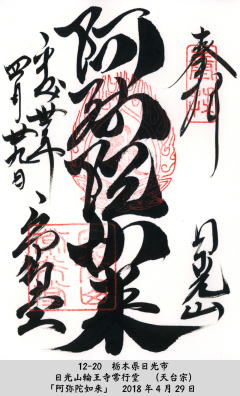 奉拝
日光山
阿弥陀如来
常行堂
平成卅年
四月廿九日
12-20 栃木県日光市
日光山輪王寺常行堂 (天台宗)
「阿弥陀如来」 2018年4月29日